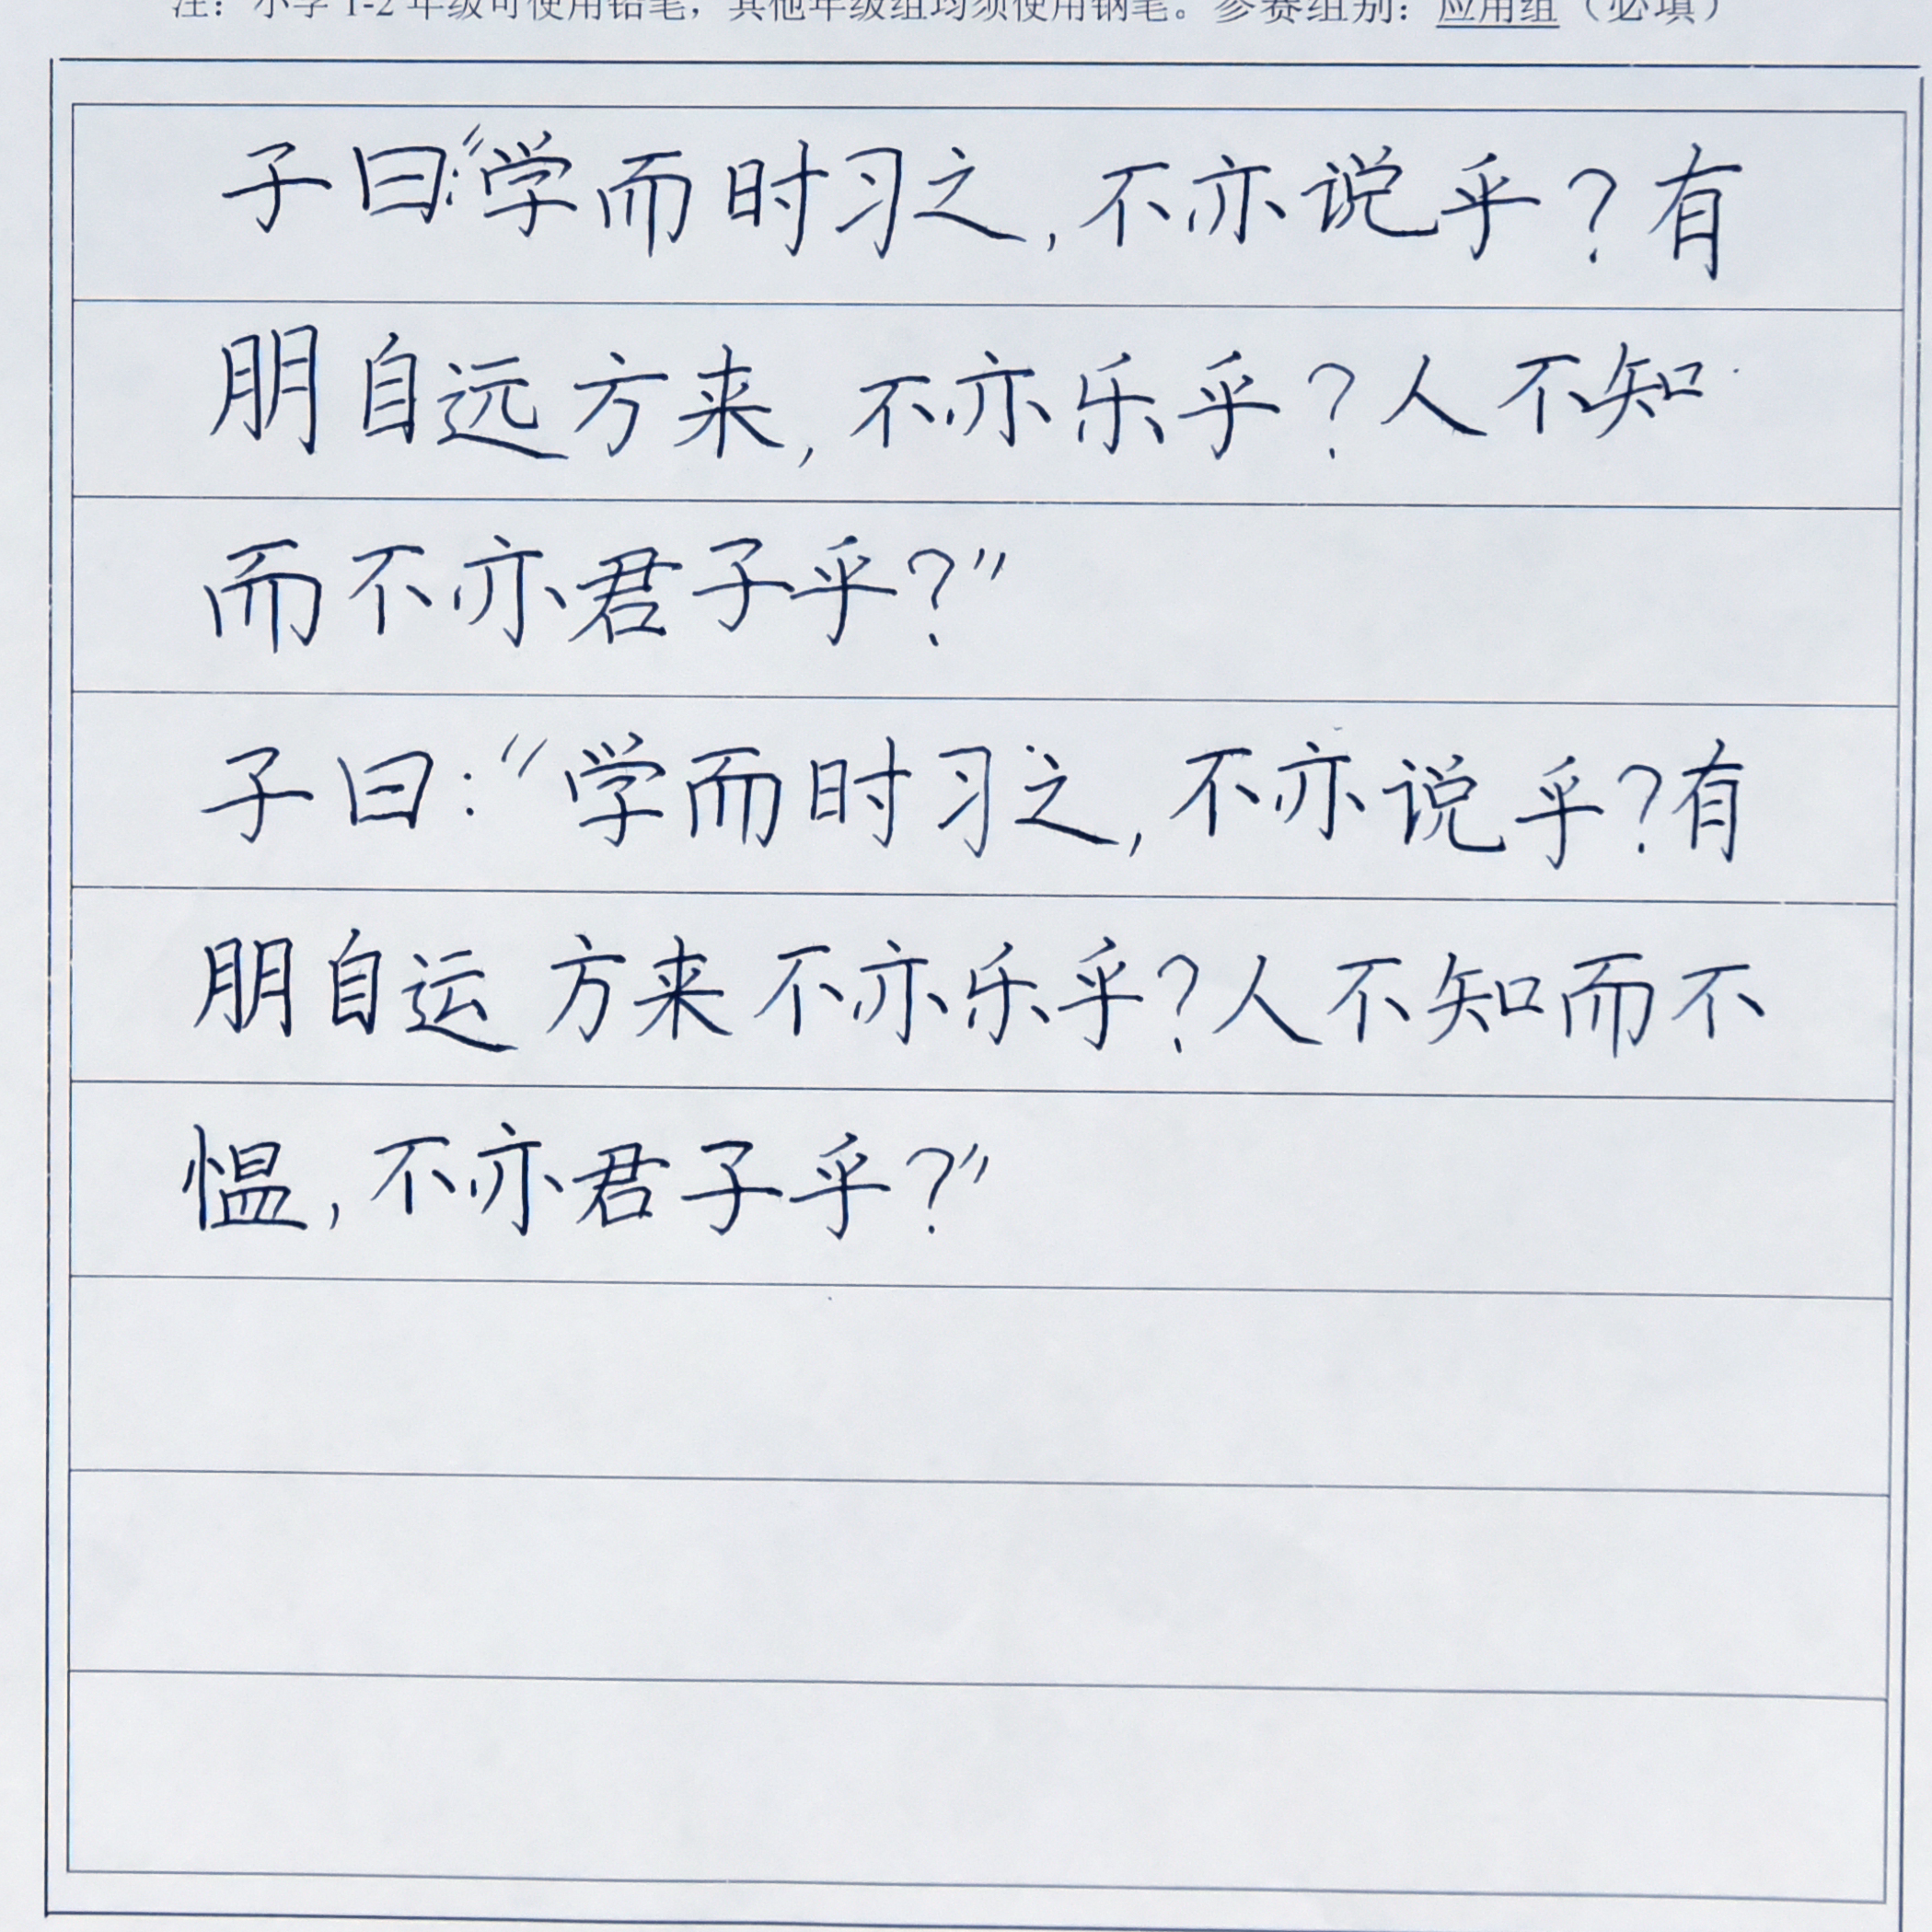 注：小学 1-2 年级可使用铅笔，其他年级组均须使用钢笔。参赛组别：应用组（必填）
子曰:“学而时习之,不亦说乎?有
朋自远方来,不亦乐乎?人不知
而不亦君子乎?”
子曰:“学而时习之,不亦说乎?有
朋自运方来不亦乐乎?人不知而不
愠,不亦君子乎?”